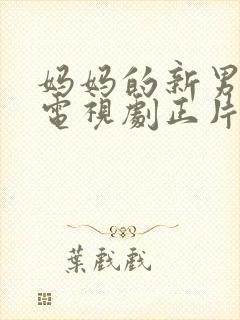 妈妈的新男
電視劇正片
葉戲戲